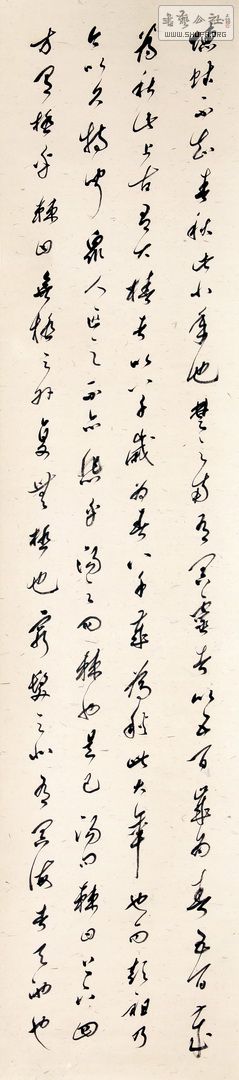 蟪蛄不知春秋此小年也楚之南有冥靈者以五百歲為春五百歲
為秋此上古有大椿者以八千歲為春八千歲為秋此大年也而彭祖乃
今以久特聞眾人匹之不亦悲乎湯之問棘也是已湯問棘曰上下四
方有極乎棘曰無極之外復無極也窮髮之北有冥海者天池也
書藝公社
WWW.SHUFA.ORG